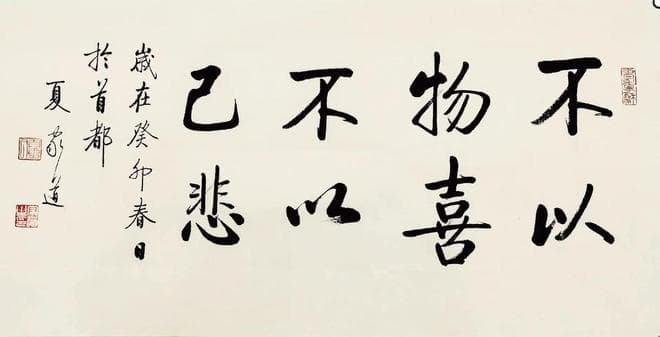 不以
物喜
不以
己悲
歲在癸卯春日
於首都
夏家道